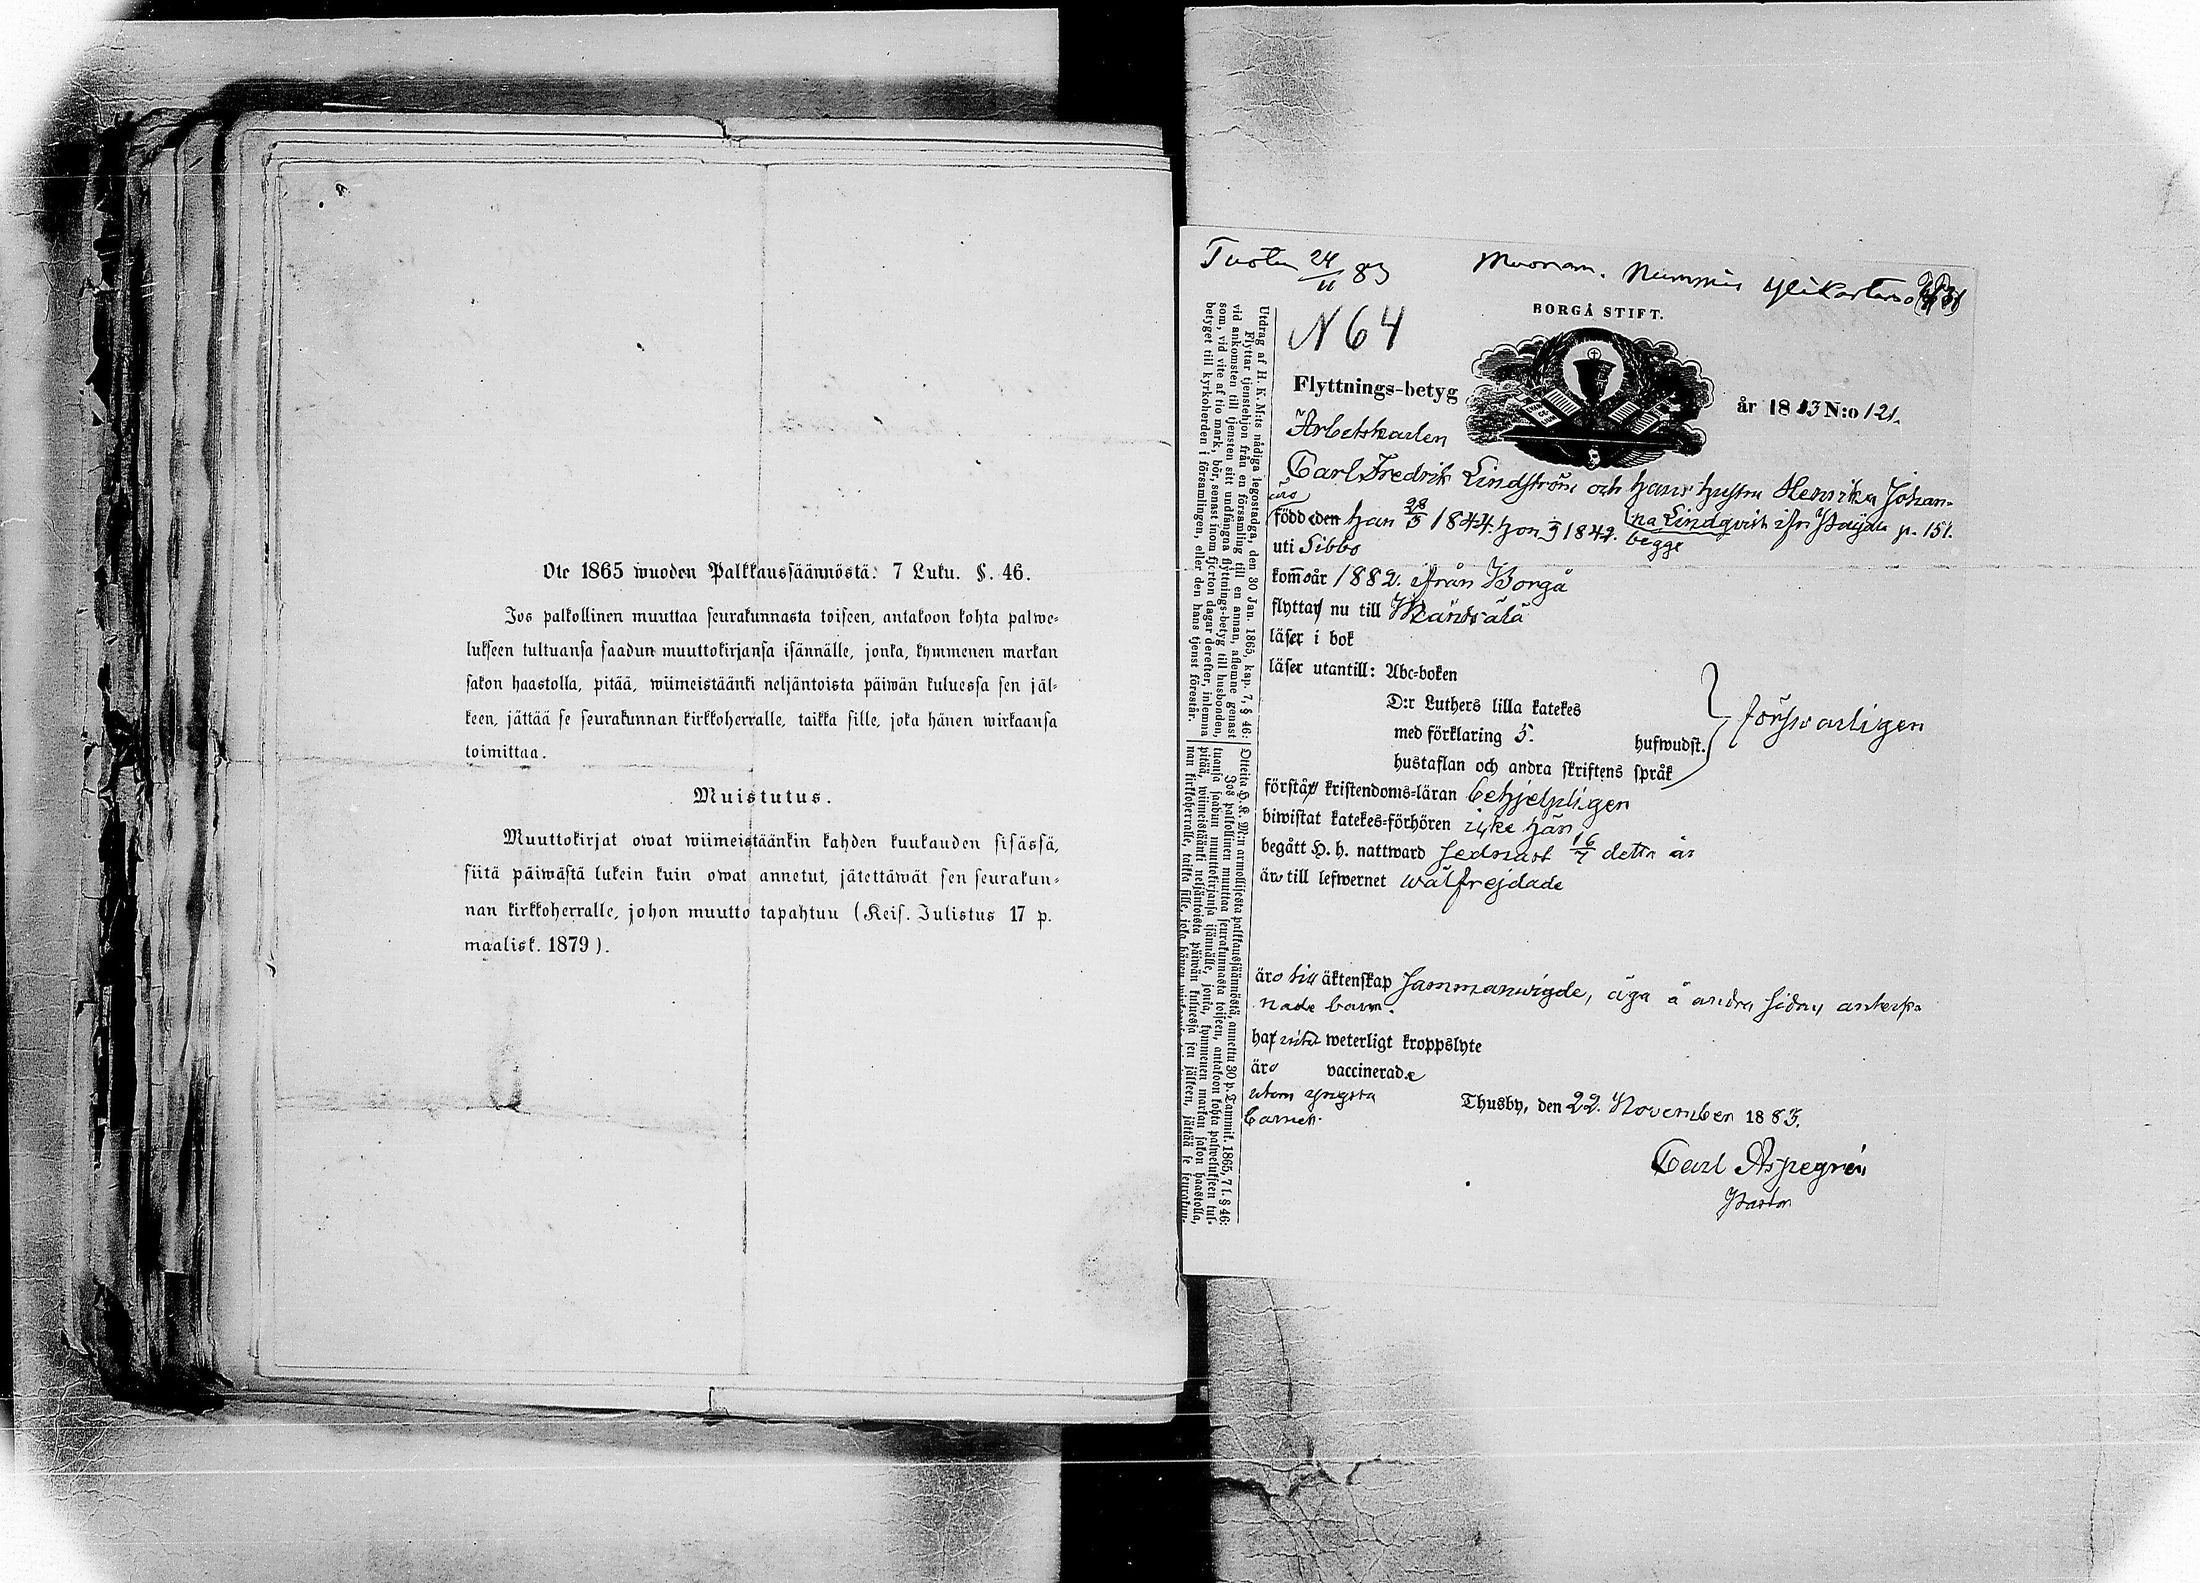 Ote 1865 wuoden Palkkaussäännöstä: 7 Luku. §. 46.
Jos palkollinen muuttaa seurakunnasta toiseen, antakoon kohta palwe-
lukseen tultuansa saadun muuttokirjansa isännälle, jonka, kymmenen markan
sakon haastolla, pitää, wiimeistäänki neljäntoista päiwän kuluessa sen jäl-
keen, jättää se seurakunnan kirkkoherralle, taikka sille, joka hänen wirkaansa
toimittaa.
Muistutus.
Muuttokirjat owat wiimeistäänkin kahden kuukauden sisässä,
siitä päiwästä lukein kuin owat annetut, jätettäwät sen seurakun-
nan kirkkoherralle, johon muutto tapahtuu (Keis. Julistus 17 p.
maalisk. 1879).
Tuotu 24/11 83
Nummis
N 64
BORGÅ STIFT.
Flyttnings-betyg
år 1883 N:o 121.
Arbetskarlen
Carl Fredrik Lindström och hans hustru Henrika Johan-
äro
född eden han 28/3 1844. hon 1842. na Lindqvist ifrån p. 151.
begge
uti Sibbo
kom̄o år 1882. ifrån Borgå
flytta nu till Mäntsälä
läser i bok
läser utantill: Abc-boken
D:r Luthers lilla katekes
med förklaring 5. hufwudst.
hustaflan och andra skriftens språk
förswarligen
förstår kristendoms-läran behjelpligen
biwistat katekes-förhören icke här
begått H. h. nattward sednast 16/7 detta år
äro till lefwernet wälfrejdade
äro till äktenskap sammanwigde, äga å andra sidan anteck-
nade barn.
har intet weterligt kroppslyte
äro vaccinerade
utom yngsta
barnet.
Thusby, den 22. November 1883.
Carl Aspegrén
Pastor
Utdrag af H. K. M:ts nådiga legostadga, den 30 Jan. 1865, kap. 7, § 46:
Flyttar tjenstehjon från en församling till en annan, aflemne genast
vid ankomsten till tjensten sitt undfångna flyttnings-betyg till husbonden,
som, vid vite af tio mark, bör, senast inom fjorton dagar derefter, inlemna
betyget till kyrkoherden i församlingen, eller den hans tjenst förestår.
Otteita H. K. M:in armollisesta palkkaussäännöstä, annettu 30 p. Tammik. 1865, 7 l. § 46:
Jos palkollinen muuttaa seurakunnasta toiseen, antakoon kohta palwelukseen tul-
tuansa saadun muuttokirjansa isännälle, jonka, kymmenen markan sakon haastolla,
pitää, wiimeistäänki neljäntoista päiwän kuluessa sen jälkeen, jättää se seurakun-
nan kirkkoherralle, taikka sille, joka hänen